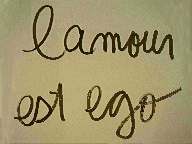 lamour
est ego